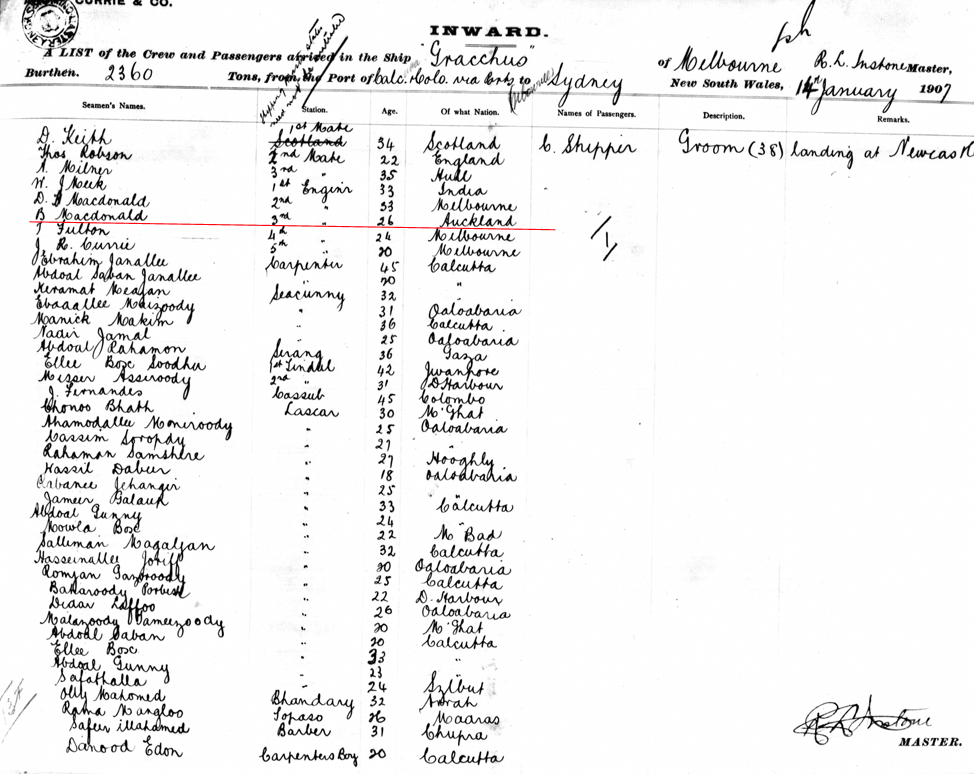 CURRIE & CO.
INWARD.
A LIST of the Crew and Passengers arrived in the Ship "Gracchus" of Melbourne R. L. Instone Master,
Burthen. 2360 Tons, from the Port of Calc. Colo. via to Sydney New South Wales, 14th January 1907
Seamen's Names. Station. Age. Of what Nation. Names of Passengers. Description. Remarks.
D. Keith 1st Mate Scotland 34 Scotland C. Shipper Groom (38) landing at Newcastl
Thos Robson 2nd Mate 22 England
A. Milner 3rd " 35 Hull
W. J Meek 1st Enginr 33 India
D. Macdonald 2nd " 33 Melbourne
B Macdonald 3rd " 26 Auckland
T Fulton 4th 24 Melbourne
J. R. Currie 5th 20 Melbourne
Ebrahim Janallee Carpenter 45 Calcutta
Abdoal Saban Janallee 20 "
Keramat Meajan Seacunny 32
Ebaaallee Maizoody " 31 Oaloabaria
Manick Makim " 36 Calcutta
Nadir Jamal " 25 Oaloabaria
Abdoal Rahamon Serang 36 Gaza
Ellee Box Soodhu 1st Tindal 42 Jwanpore
Misser Assiroody 2nd " 31 D Harbour
J. Fernandes Cassub 45 Colombo
Chonoo Bhath Lascar 30 M'Ghat
Ahamodallee Moniroody " 25 Oaloabaria
Cassim Soropdy " 27 "
Rahaman Samshire " 27 Hooghly
Hassil Dabur " 18 Oaloabaria
Erbanee Jehangir " 25 "
Jameer Balauk " 33 Calcutta
Abdoal Gunny " 24 "
Mowla Box " 22 M' Bad
Salleman Magaljan " 32 Calcutta
Hasseinallee Joriff " 20 Oaloabaria
Romjan Gazoroody " 25 Calcutta
Bakaroody " 22 D. Harbour
Didar Laffoo " 26 Oaloabaria
Malazoody Jameezoody " 20 M'Ghat
Abdoal Saban " 20 Calcutta
Ellee Box " 33 "
Abdoal Gunny " 23
Safathalla " 24 Szlbut
Olly Mahomed Bhandary 32
Rama Mangloo Topaso 26 Maaras
Safeer illahamed Barber 31 Chupra
Danood Edon Carpenters Boy 20 Calcutta
R L Instone
MASTER.